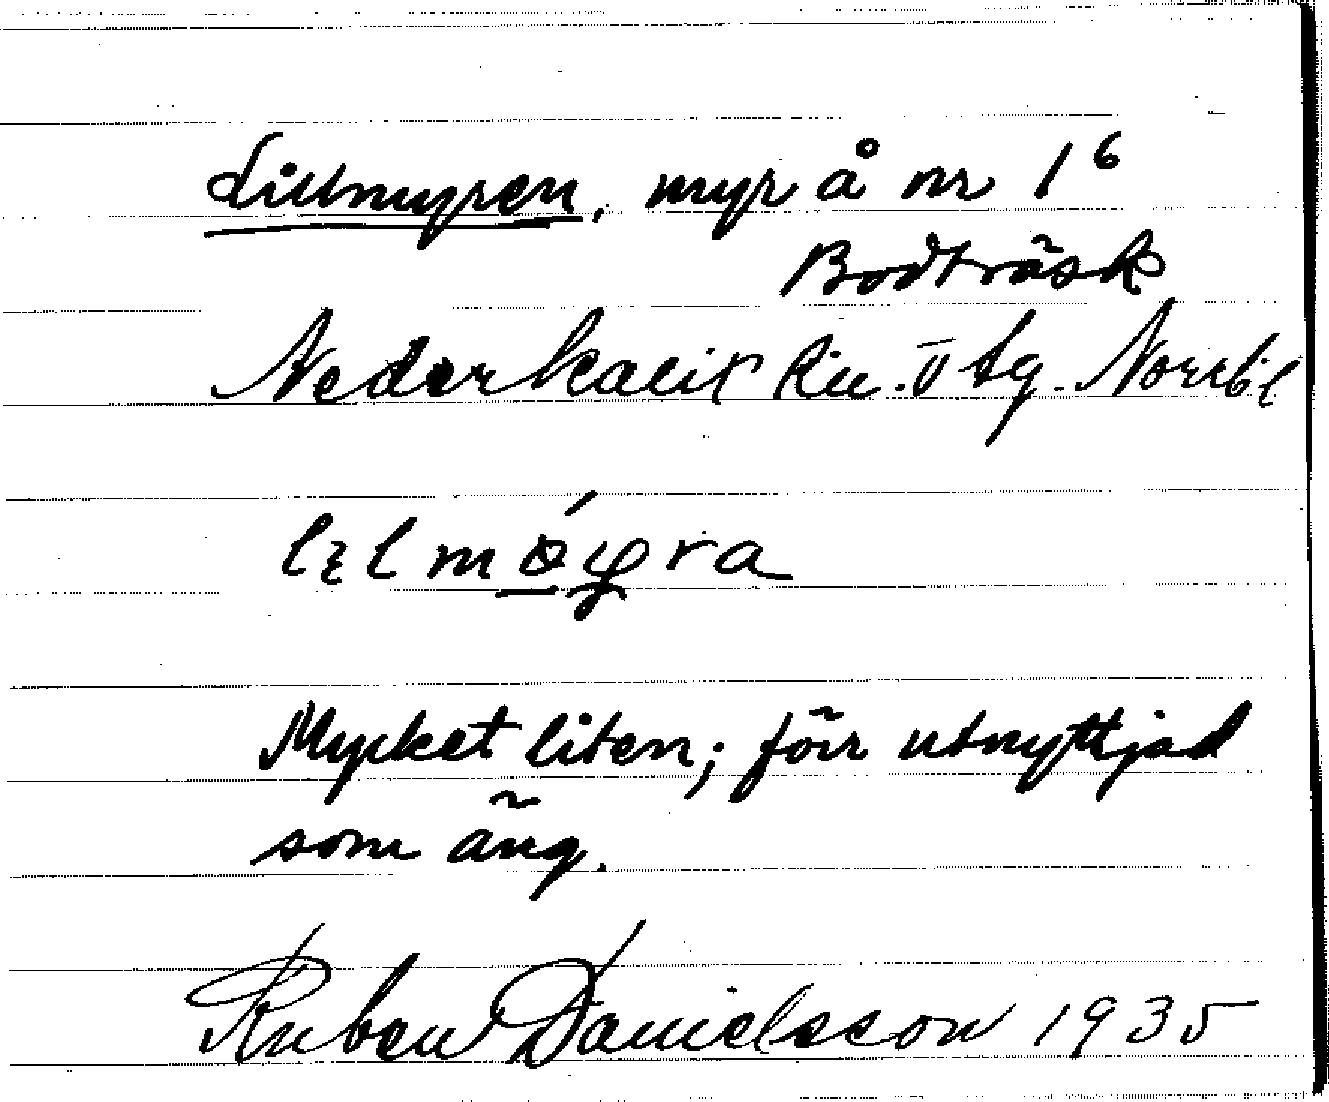 Lillmyren, myr å nr 1⁶
Bodträsk
Nederkalix sn. Vbg. Norrb. l
Mycket liten; förr utnyttjad
som äng.
Ruben Danielsson 1935